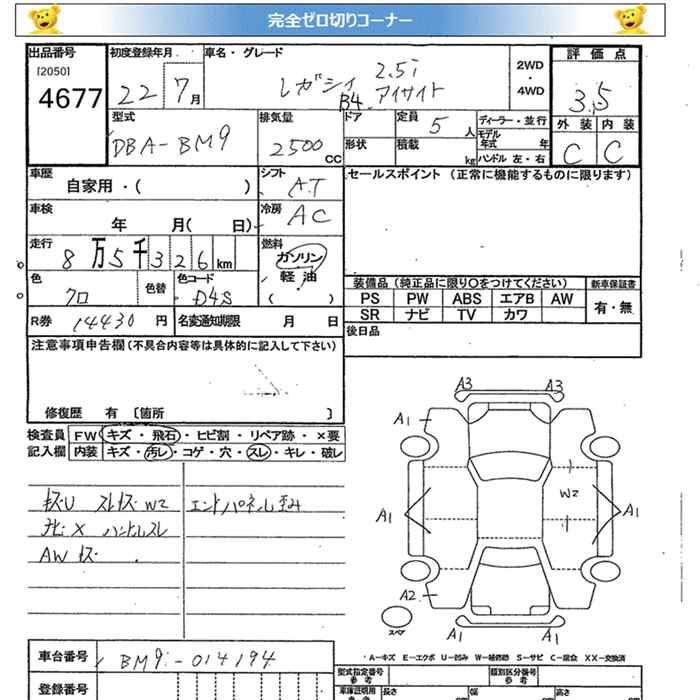 完全ゼロ切りコーナー
出品番号 初度登録年月 車名・グレード 評価点
[2050]
4677
22 7月
レガシィ 2.5i
B4 アイサイト
2WD
・
4WD
3.5
外装 内装
C C
型式 排気量 ドア 定員 5人 ディーラー・並行
DBA-BM9 2500CC
形状 積載 kg
モデル年式 年
ハンドル 左・右
車歴 シフト セールスポイント (正常に機能するものに限ります)
自家用・( ) AT
車検 冷房
年 月( 日) AC
走行 燃料
8万5千326km ガソリン
軽油
( )
色 色替 色コード
クロ D4S
装備品 (純正品に限り〇をつけてください) 新車保証書
PS PW ABS エアB AW 有・無
SR ナビ TV カワ
R券 14430円 名変通知期限 月 日
後日品
注意事項申告欄 (不具合内容等は具体的に記入して下さい)
修復歴 有 [箇所 ]
検査員 FW キズ・飛石・ヒビ割・リペア跡・×要
記入欄 内装 キズ・汚レ・コゲ・穴・スレ・キレ・破レ
キズU スレキズ W2 エンドパネル歪み
ナビ X ハンドルスレ
AW キズ
A3 A3
A1 A1
W2
A1 A1
A2
スペア
A1 A1
A-キズ E-エクボ U-凹み W-補修跡 S-サビ C-腐食 XX-交換済
車台番号 BM9-014194
登録番号
型式指定番号 参考 類別区分番号 参考
車庫証明用 長さ 幅 高さ